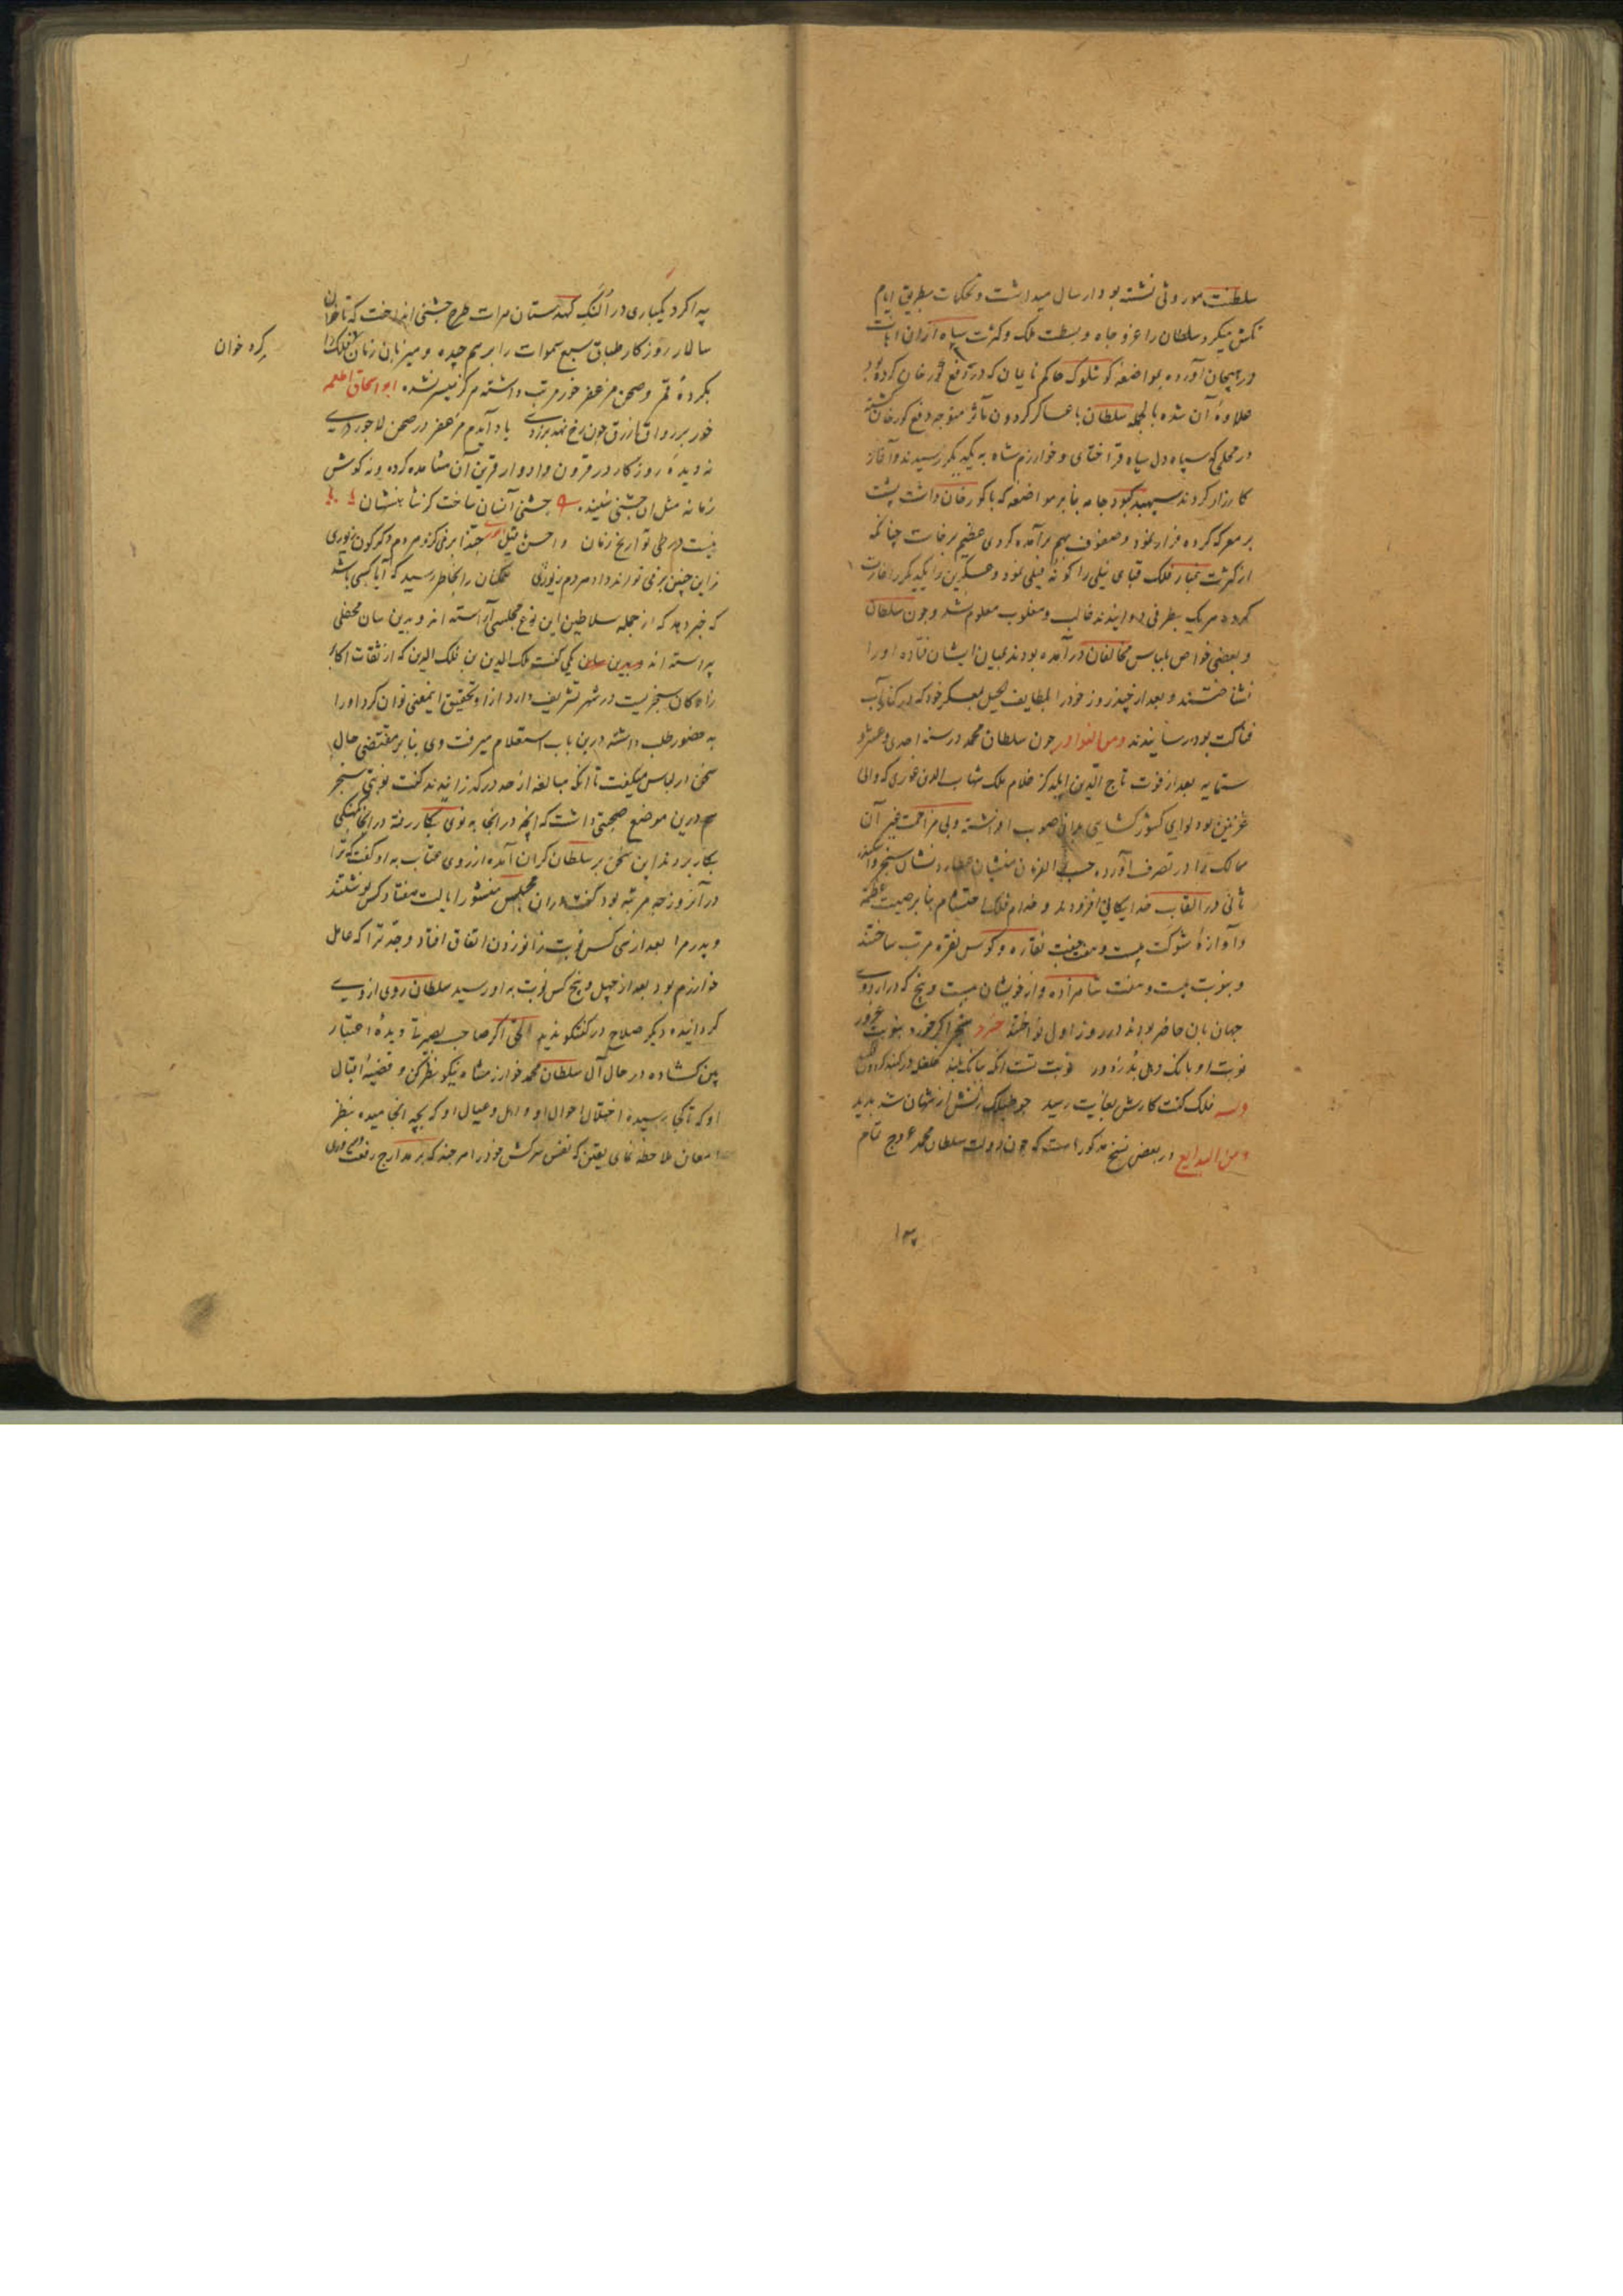 سلطنت موروثی نشسته بود ارسال میداشت و تحکمات بطریق ایام
تکش میکرد سلطان را عز و جاه و بسطت ملک و کثرت سپاه از ان ابا
در هیجان آورده مواضعه کوشلوک حاکم نایمان که در دفع کورخان کرده بود
علاوهٔ آن شده بالجمله سلطان با عساکر کردون مآثر متوجه دفع کورخان کشته
در محلی که سپاه دل سیاه قراختای و خوارزم شاه به یکدیکر رسیدند و آغاز
کارزار کردند سپهبد کبود جامه بنابر مواضعه که با کورخان داشت پشت
بر معرکه کرده فرار نمود و صفوف بهم برآمده کردی عظیم برخاست چنانکه
از کثرت غبار فلک قبای نیلی را کونه فیلی نمود و عسکرین یکدیکر را غارت
کرده هر یک بطرفی دوانیدند غالب و مغلوب معلوم نشد و چون سلطان
و بعضی خواص بلباس مخالفان درآمده بودند بمیان ایشان فتاده او را
نشناختند و بعد از چند روز خود را بلطایف الحیل بعسکر خود که در کنار آب
فناکت بود رسانیدند ومن النوادر چون سلطان محمد در سنه احدی و عشر و
ستمایه بعد از فوت تاج الدین ایلدکز غلام ملک شهاب الدین غوری که والی
غزنین بود لوای کشور کشایی بدان صوب افراشته و بی مزاحمت غیر آن
ممالک را در تصرف آورده حسب الفرمان منشیان عطارد نشان سنجر و اسکندر
ثانی در القاب خدایکانی افزودند و خدام فلک احتشام بنابر صیت عظمت
و آوازهٔ شوکت بیست و هفت جفت نقاره و کوس نقره مرتب ساختند
و بنوبت بیست و هفت شاهزاده و از خویشان بیست و پنج که در اردوی
جهان بان حاضر بودند در روز اول نواختند
نوبت او بانک دهل بد ز دور نوبت تست انکه ببانک بلند غلغل در کنبد کردون
وله فلک کفت کارش بغایت رسید
ومن البدایع در بعضی نسخ مذکور است که چون دولت سلطان محمد عروج تمام
۱۳
پیدا کرد یکباری در النک کهدستان هرات طرح جشنی انداخت که تا خوان
سالار روزکار طباق سبع سموات را بر هم چیده و میزبان زمان فلک را
بکردهٔ قمر و صحن مزعفر خور مرتب داشته هرکز میسر نشده ابو اسحاق اطعمه
خور بر رواق ازرق چون رخ نمد بزردی یاد آیدم مزعفر در صحن لاجوردی
نه دیدهٔ روزکار در قرون و ادوار قرین آن مشاهده کرده و نه کوش
زمانه مثل ان جشنی شنیده جشنی آنسان ساخت کز شاهنشهان
نیست در طی تواریخ زمان و احسن من قیل
زاین چنین برفی تو را نداد مردم زنوری همکنان را بخاطر رسید که آیا کسی باشد
که خبر دهد که از جمله سلاطین این نوع مجلسی آراسته اند و بدین سان محفلی
پیراسته اند یکی کفت ملک الدین بن فلک الدین که از ثقات اکابر
زادکان سنجریست در شهر تشریف دارد از او تحقیق اینمعنی توان کرد او را
به حضور طلب داشته درین باب استعلام میرفت وی بنابر مقتضی حال
سخن در لباس میکفت تا انکه مبالغه از حد درکذرانیدند کفت نوبتی سنجر
هم درین موضع صحبتی داشت که انچه در انجا به نوی بکار رفته در انجا کهنکی
بکار بردند این سخن بر سلطان کران آمده از روی عتاب به او کفت که ترا
در آنروز چه مرتبه بود کفت در ان مجلس منشور ایالت هفتاد کس نوشتند
و پدر مرا بعد از سی کس نوبت زانو زدن اتفاق افتاد و جد ترا که عامل
خوارزم بود بعد از چهل و پنج کس نوبت به او رسید سلطان روی از وی
کردانیده دیکر صلاح در کفتکو ندید الحق اکر صاحب بصیرتا دیدهٔ اعتبار
بین کشاده در حال آل سلطان محمد خوارزمشاه نیکو نظر کن و قضیهٔ اقبال
او که تا کجا رسیده و اختلال احوال او و اهل و عیال او که بچه انجامیده بنظر
امعان ملاحظه نمای یقین که نفس سرکش خود را هرچند که بر مدارج رفعت
کرده خوان